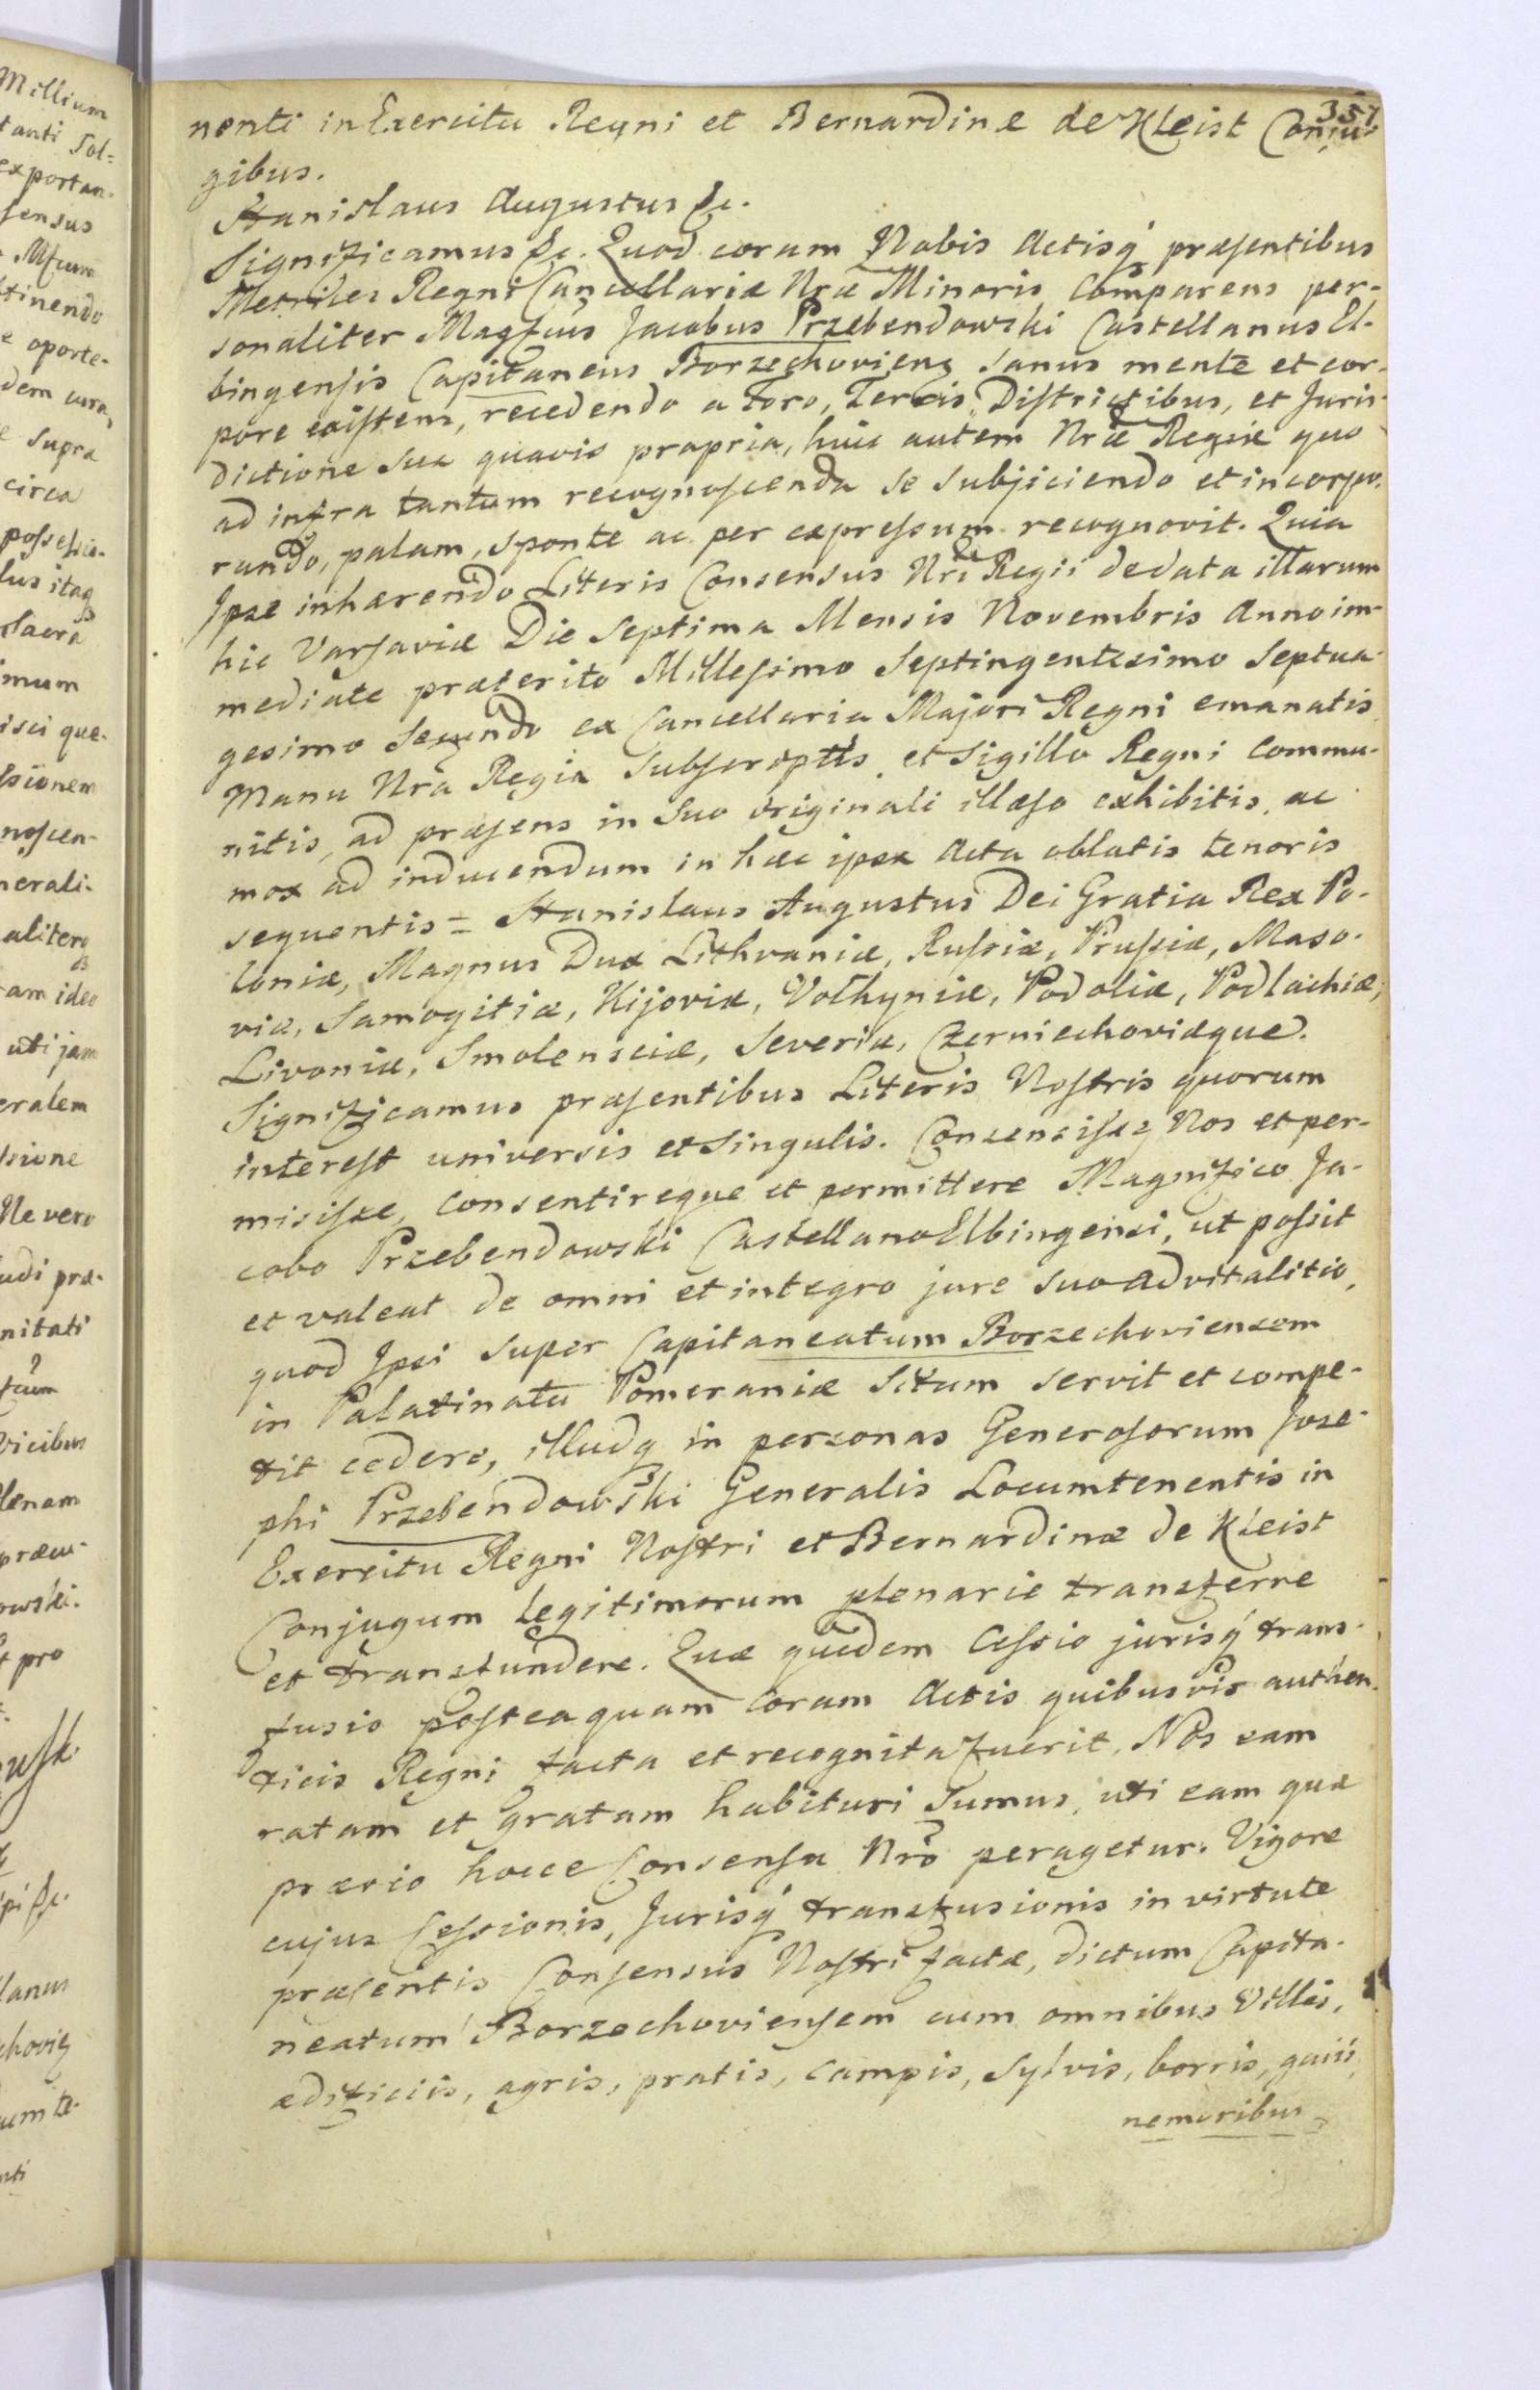 357
nenti in Exercitu Regni et Bernardinæ de Kleist Conju-
gibus.
Stanislaus Augustus &c.
Significamus &c. Quod coram Nobis Actisq́ præsentibus
Metrices Regni Cancellariæ Nræ Minoris comparens per-
sonaliter Magfcus Jacobus Przebendowski Castellanus El-
bingensis Capitaneus Borzechoviens sanus mente et cor-
pore existens, recedendo a Foro, Terris, Districtibus, et Juris-
dictione sua quavis propria, huic autem Nræ Regiæ quo
ad infra tantum recognoscenda se subjiciendo et incorpo-
rando, palam, sponte ac per expressum recognovit. Quia
Ipse inhærendo Literis Consensus Nri Regii de data illarum
hic Varsaviæ Die Septima Mensis Novembris Anno im-
mediate præterito Millesimo Septingentesimo Septua-
gesimo Secundo ex Cancellaria Majori Regni emanatis
Manu Nra Regia subscriptis et Sigillo Regni commu-
nitis, ad præsens in suo originali illæso exhibitis, ac
mox ad inducendum in hæc ipsa Acta oblatis tenoris
sequentis = Stanislaus Augustus Dei Gratia Rex Po-
loniæ, Magnus Dux Lithvaniæ, Russiæ, Prussiæ, Maso-
viæ, Samogitiæ, Kijoviæ, Volhyniæ, Podoliæ, Podlachiæ,
Livoniæ, Smolensciæ, Severiæ, Czerniechoviæque.
Significamus præsentibus Literis Nostris quorum
interest universis et singulis. Consensisse Nos et per-
misisse, consentireque et permittere Magnifico Ja-
cobo Przebendowski Castellano Elbingensi, ut possit
et valeat de omni et integro jure suo advitalitio,
quod Ipsi super Capitaneatum Borzechoviensem
in Palatinatu Pomeraniæ situm servit et compe-
tit cedere, illudq in personas Generosorum Jose-
phi Przebendowski Generalis Locumtenentis in
Exercitu Regni Nostri et Bernardinæ de Kleist
Conjugum legitimorum plenarie transferre
et transfundere. Quæ quidem Cessio jurisq́ trans-
fusio posteaquam coram Actis quibusvis authen-
ticis Regni facta et recognita fuerit, Nos eam
ratam et gratam habituri sumus, uti eam quæ
prævio hocce Consensu Nro peragetur. Vigore
cujus Cessionis, Jurisq́ transfusionis in virtute
præsentis Consensus Nostri factæ, dictum Capita-
neatum Borzechoviensem cum omnibus Villis,
ædificiis, agris, pratis, campis, sylvis, borris, gaiis,
nemoribus